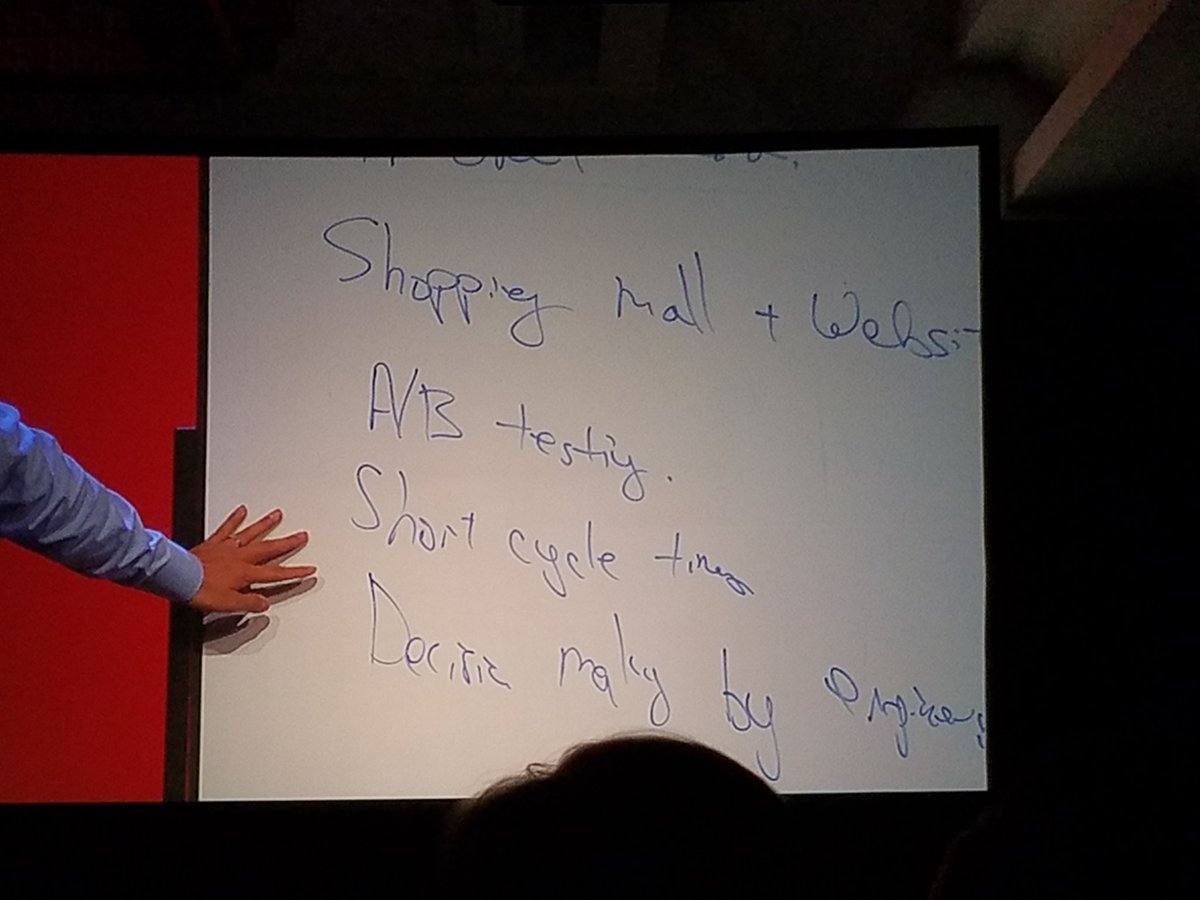 Shopping mall + Websit
A/B testing.
Short cycle times
Decision making by engineers